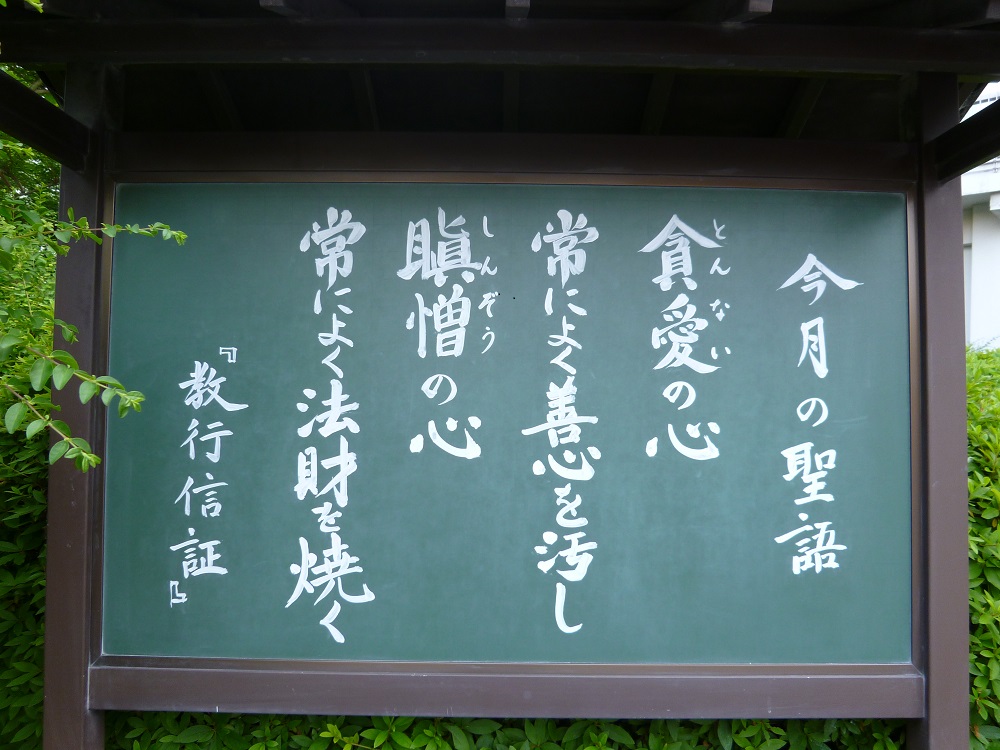 今月の聖語
貪愛の心
とんない
常によく善心を汚し
瞋憎の心
しんぞう
常によく法財を焼く
『教行信証』